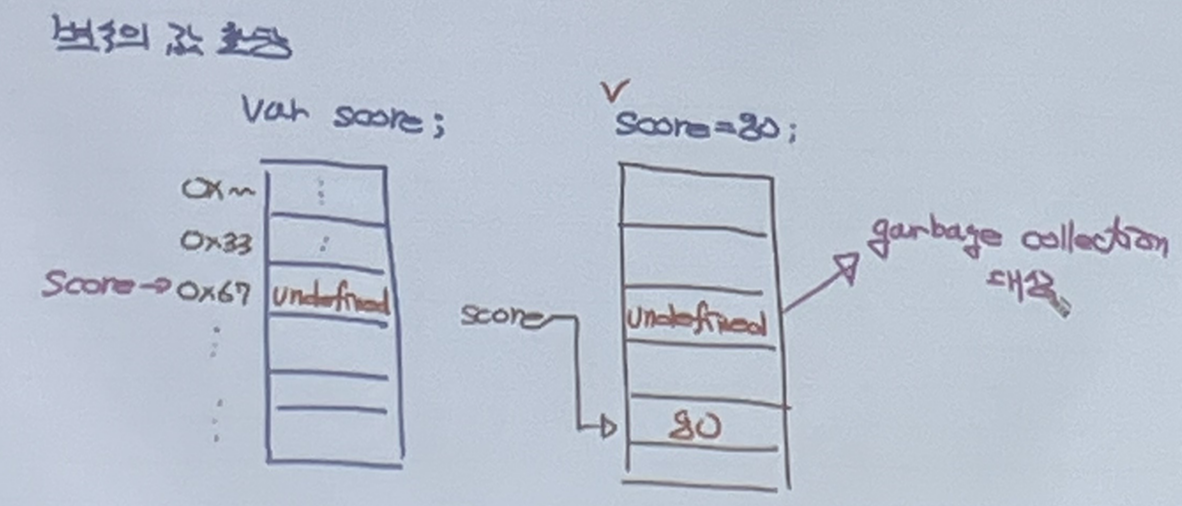 변수의 값 할당
Var score;
0x~
0x33
Score→0x67
undefined
V
Score=80;
score
undefined
80
garbage collection
대상